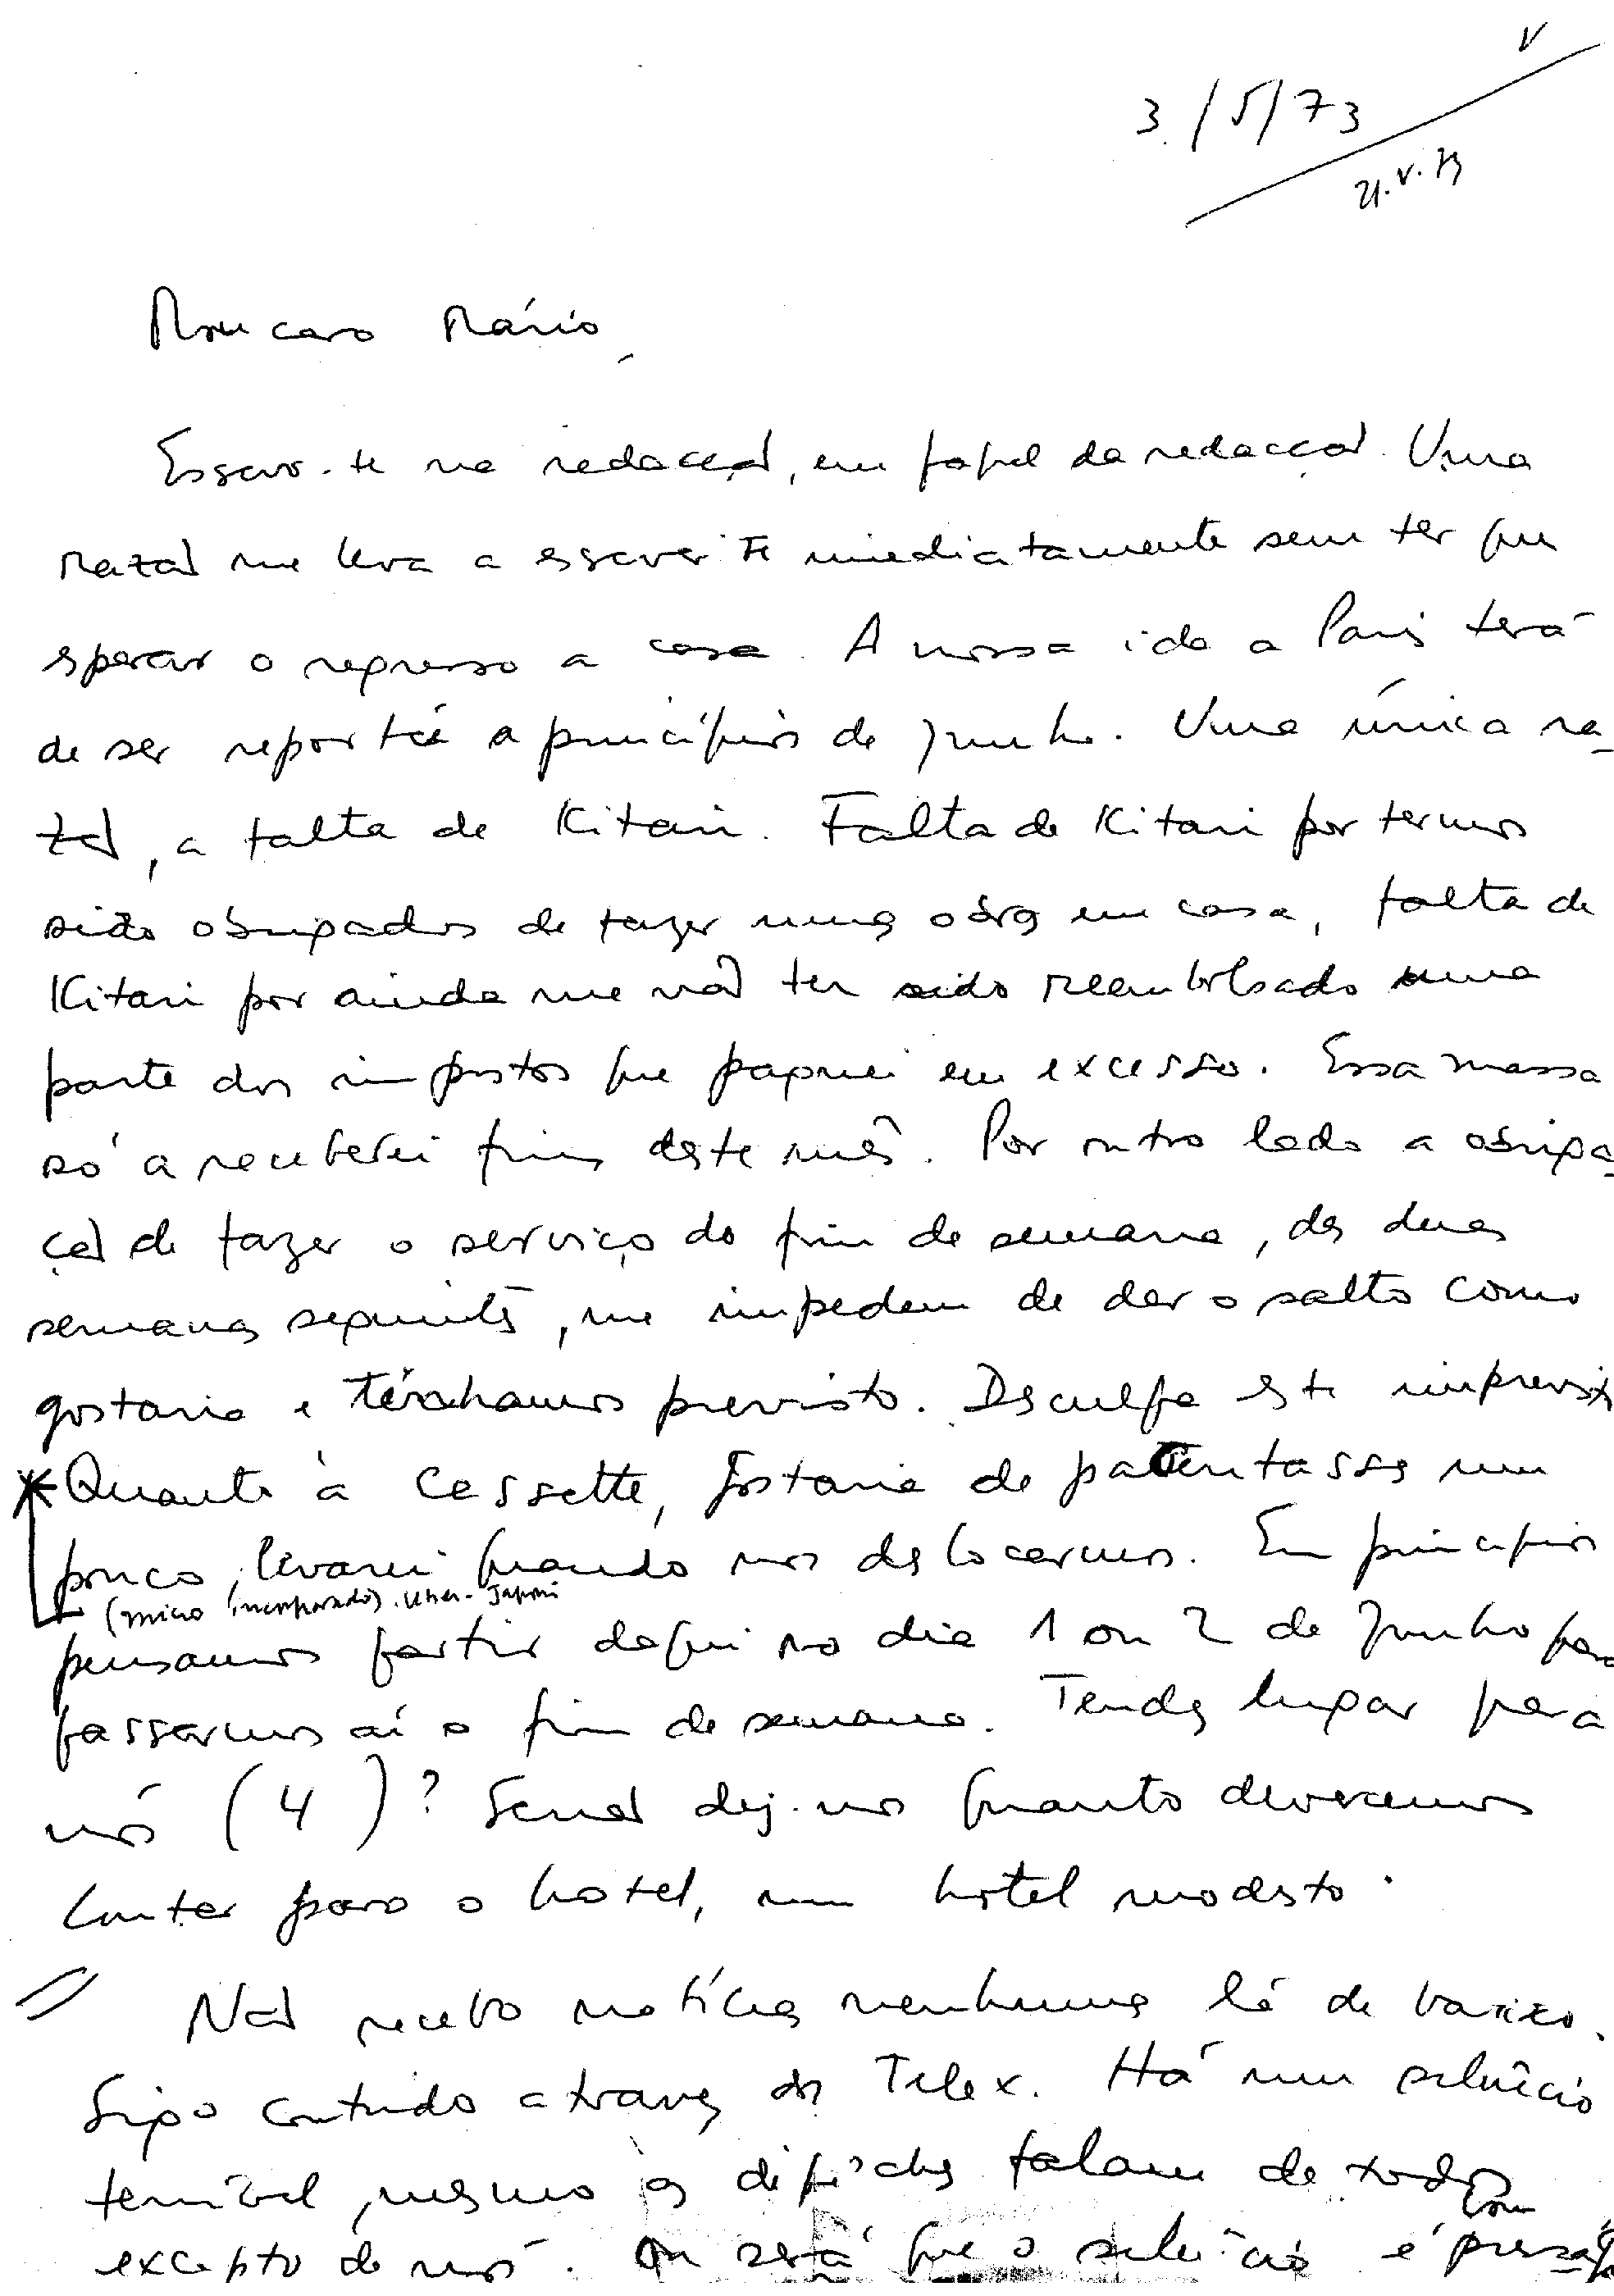 V
3/5/73
21.V.73
Meu caro Mário,
Escrevo-te na redacção, em papel da redacção. Uma
razão me leva a escrever-te imediatamente sem ter que
esperar o regresso a casa. A nossa ida a Paris terá
de ser reportée a princípios de Junho. Uma única ra-
zão, a falta de Kitari. Falta de Kitari por termos
sido obrigados de fazer umas obras em casa, falta de
Kitari por ainda me não ter sido reembolsado uma
parte dos impostos que paguei em excesso. Essa massa
só a receberei fins deste mês. Por outro lado a obriga-
ção de fazer o serviço do fim de semana, das duas
semanas seguintes, me impedem de dar o salto como
gostaria e tínhamos previsto. Desculpa este imprevisto
* Quanto à cassette, gostaria de patentasses um
pouco, levarei quando nos deslocarmos. Em princípio
(micro incorporado). Uher-
pensamos partir daqui no dia 1 ou 2 de Junho para
passarmos aí o fim de semana. Tendes lugar para
nós (4)? Senão diz-nos quanto deveremos
contar para o hotel, um hotel modesto.
Não recebo notícias nenhumas lá de baixo.
Sigo contudo através dos Telex. Há um silêncio
terrível, mesmo as dépêches falam de todos
excepto de nós. Ou será que o silêncio é